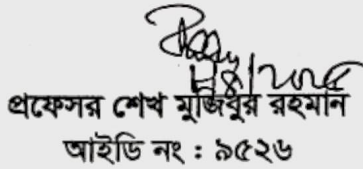 প্রফেসর শেখ মুজিবুর রহমান
আইডি নং : ৯৫২৬